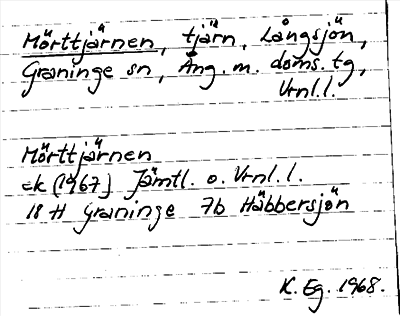 Mörttjärnen, tjärn, Långsjön,
Graninge sn, Ång. m. doms. tg,
Vrnl.l.
Mörttjärnen
ek (1967) Jämtl. o. Vrnl.l.
18 H Graninge 7b Häbbersjön
K. Eg. 1968.